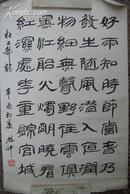 好雨知時節當春乃
發生隨風潛入夜潤
物細無聲野徑雲俱
黑江船火獨明曉看
紅濕處花重錦官城
辛酉